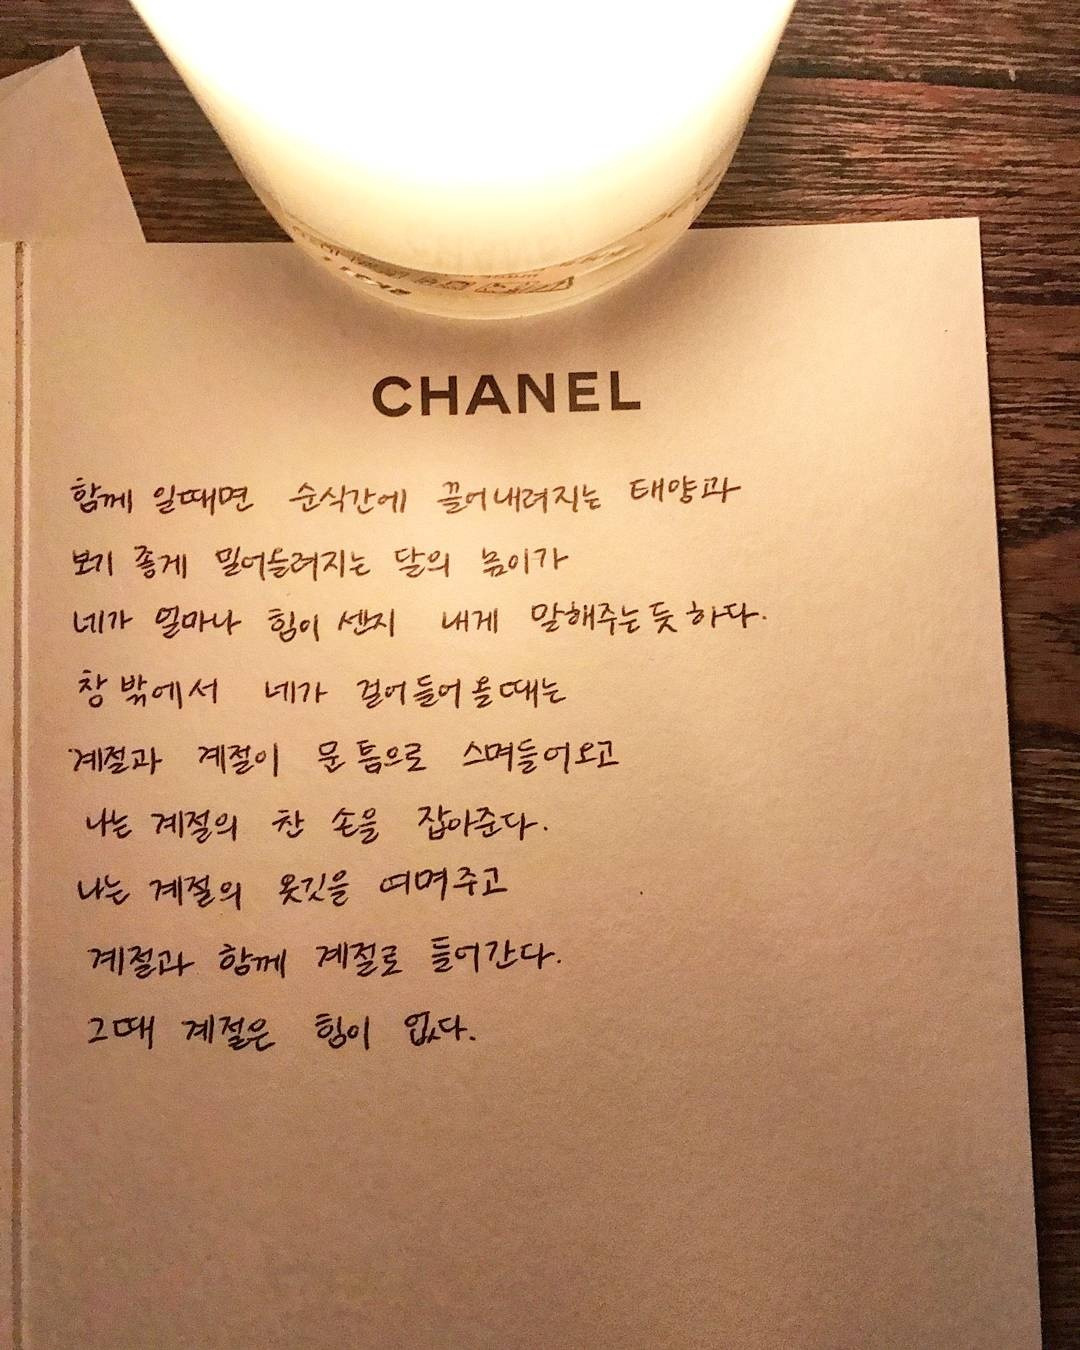 CHANEL
함께 일때면 순식간에 끌어내려지는 태양과
보기 좋게 밀어올려지는 달의 몸이가
네가 얼마나 힘이 센지 내게 말해주는듯 하다.
창 밖에서 네가 걸어들어 올때는
계절과 계절이 문 틈으로 스며들어오고
나는 계절의 찬 손을 잡아준다.
나는 계절의 옷깃을 여며주고
계절과 함께 계절로 들어간다.
그때 계절은 힘이 없다.